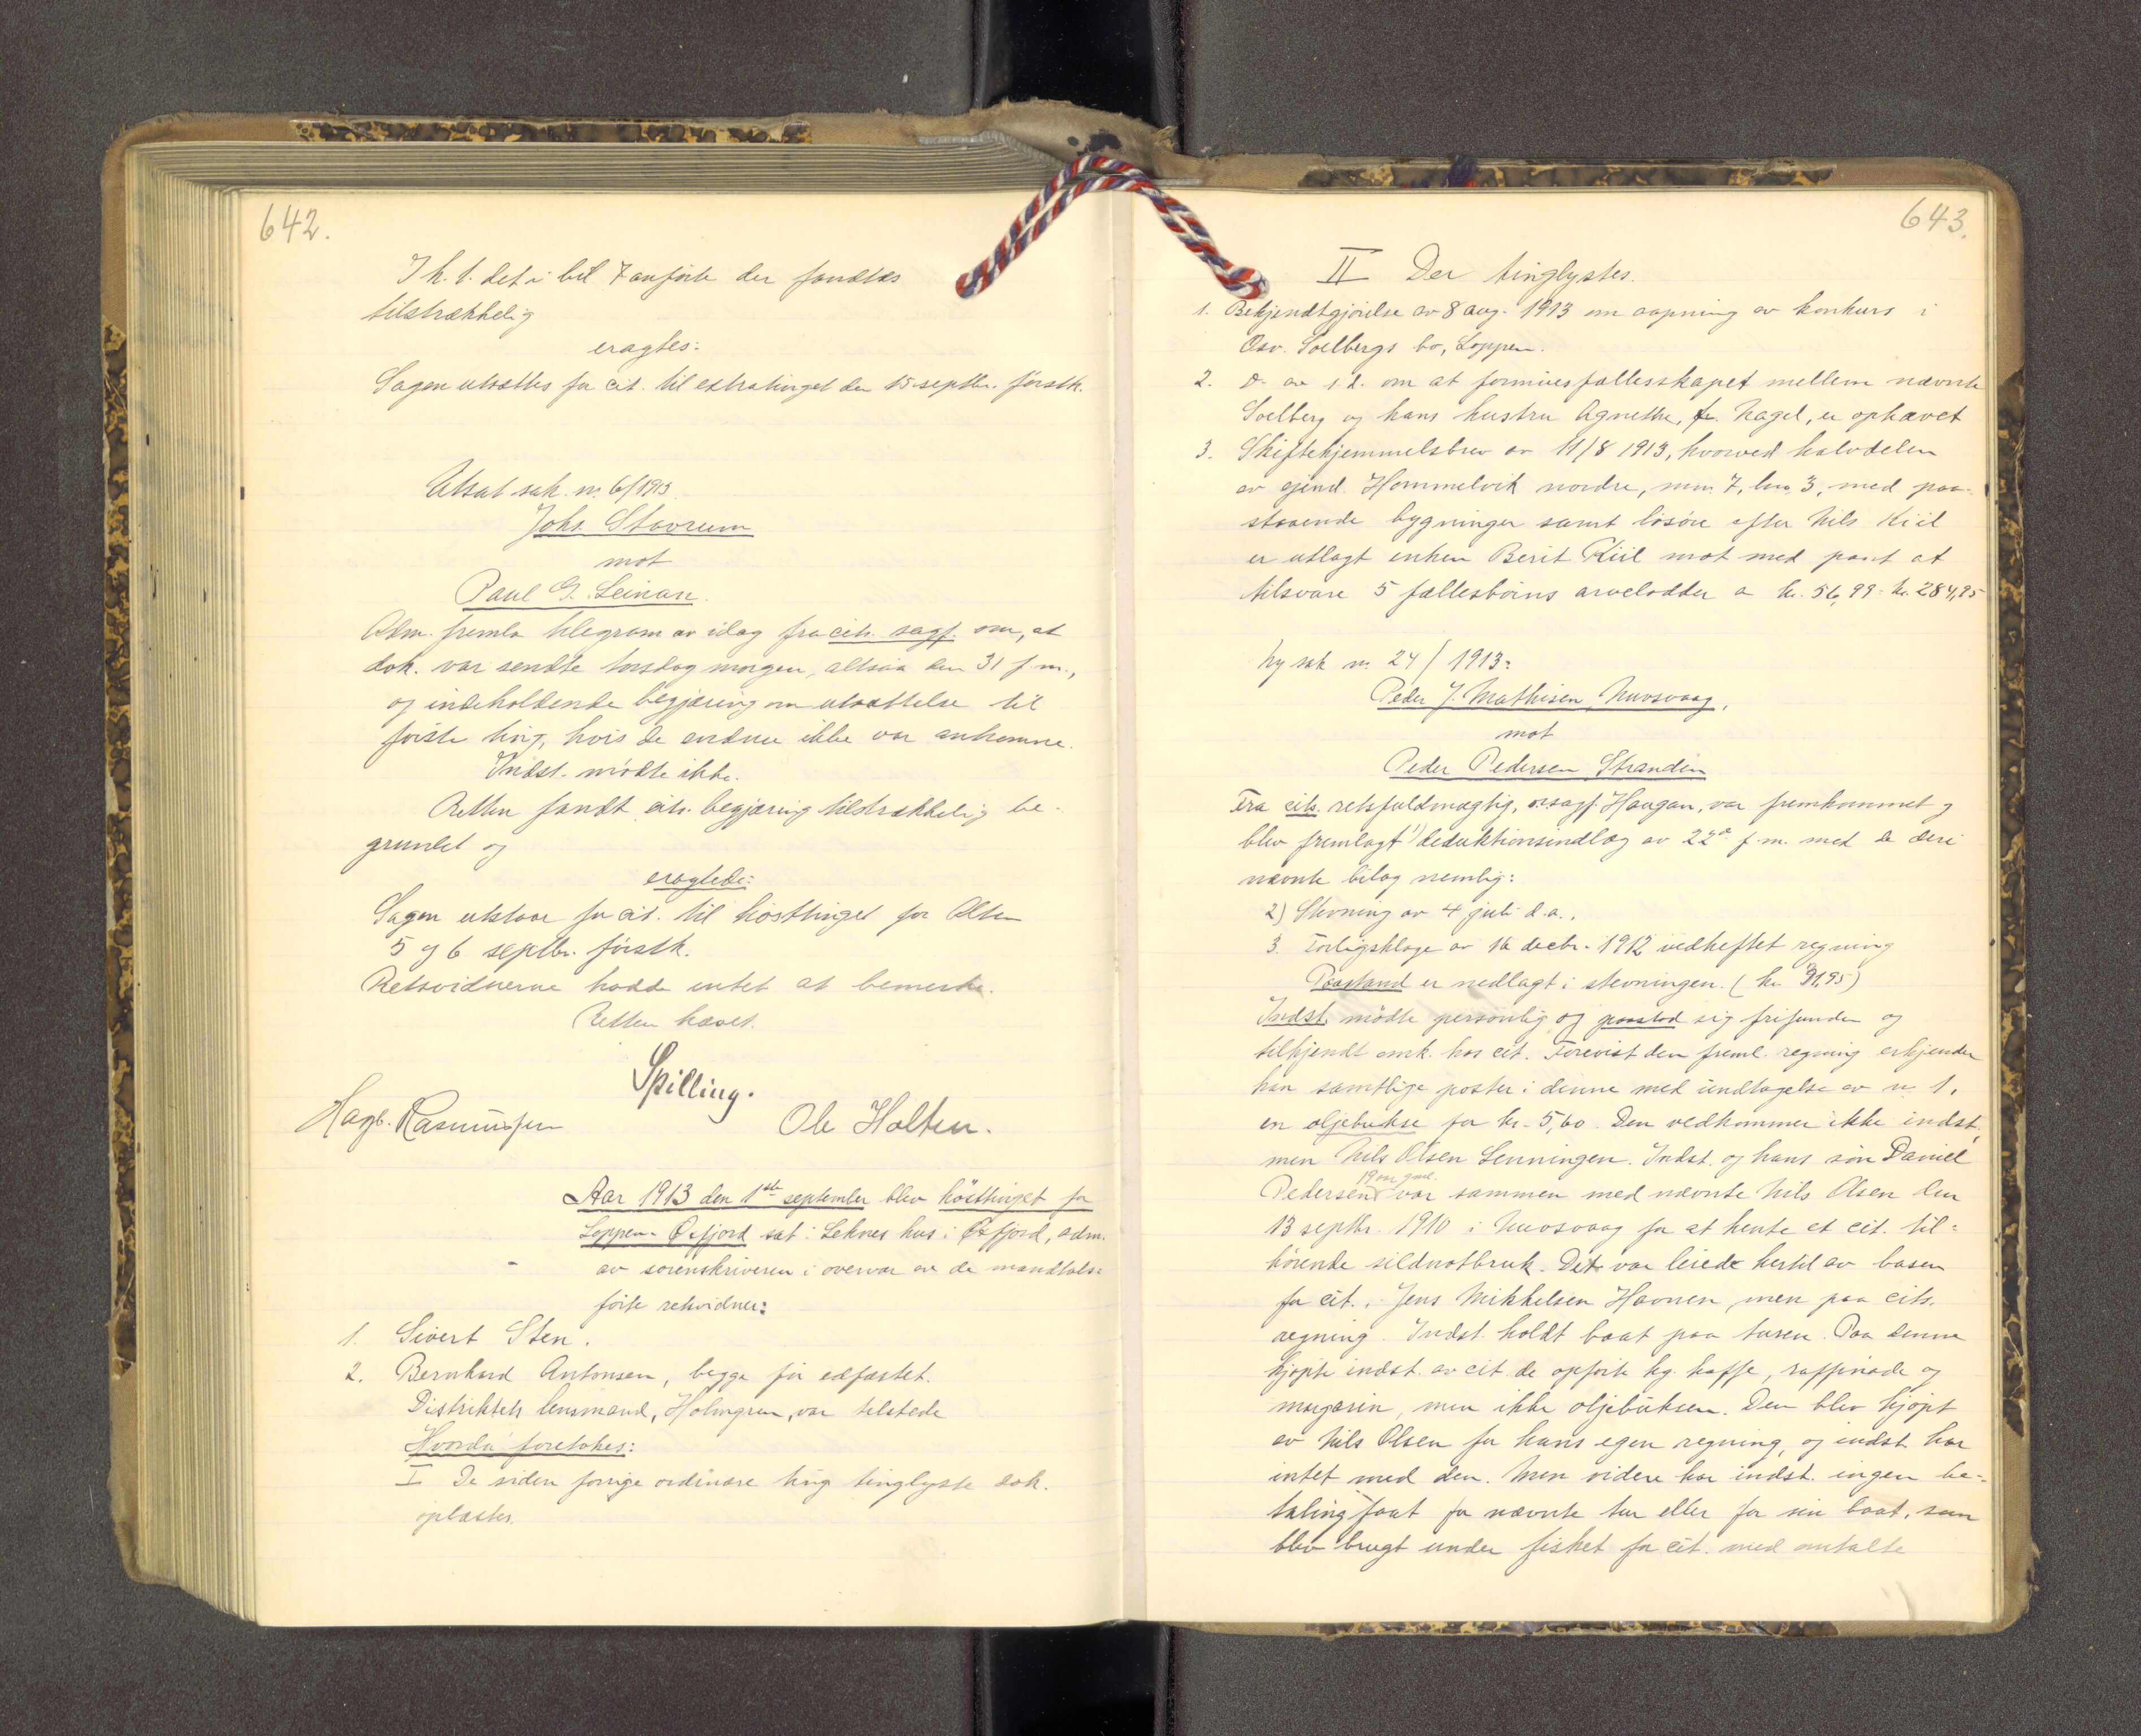 642.
I h. t. det i bil 7 anførte der fandtes
tilstrækkelig
eragtes:
Sagen utsættes for cit. til extratinget den 15 septbr. førstk.
Utsat sak nr. 6/1913.
Johs. Stavrum
mot
Paul G. Leinan.
Adm. fremla telegram av idag fra cits. sagf. om, at
dok. var sendte torsdag morgen, altsaa den 31 f.m.,
og indeholdende begjæring om utsættelse til
første ting, hvis de endnu ikke var ankomne.
Indst. mødte ikke.
Retten fandt cits. begjæring tilstrækkelig be-
grundet og
eragtede:
Sagen utstaar for cit. til høsttinget for Alten
5 og 6 septbr. førstk.
Retsvidnerne hadde intet at bemerke.
Retten hævet.
Spilling.
Hagb. Rasmussen Ole Holten.
Aar 1913 den 1ste september blev høsttinget for
Loppen-Øxfjord sat i Leknes hus i Øxfjord, adm.
av sorenskriveren i overvær av de mandtals-
førte retsvidner:
1. Sivert Sten.
2. Bernhard Antonsen, begge før edfæstet.
Distriktets lensmand, Holmgren, var tilstede
Hvorda foretokes:
I De siden forrige ordinære ting tinglyste dok.
oplæstes.
643.
II Der tinglystes.
1. Bekjendtgjørelse av 8 aug. 1913 om aapning av konkurs i
Osv. Soelbergs bo, Loppen.
2. D. av s.d. om at formuesfællesskapet mellem nævnte
Soelberg og hans hustru Agnethe, f. Nagel, er ophævet
3. Skiftehjemmelsbrev av 11/8 1913, hvorved halvdelen
av eiend. Hommelvik nordre, mnr. 7, bno 3, med paa-
staaende bygninger samt løsøre efter Nils Kiil
er utlagt enken Berit Kiil mot med pant at
tilsvare 5 fællesbørns arvelodder a kr. 56,99 = kr. 284,95
Ny sak nr. 24/1913:
Peder J. Mathisen, Nuvsvaag,
mot
Peder Pedersen Stranden
Fra cits. retsfuldmægtig, o.r.sagf. Haugan, var fremkommet og
blev fremlagt 1) deduktionsindlæg av 22de f.m. med de deri
nævnte bilag nemlig:
2) Stevning av 4 juli d.a.,
3. Forligsklage av 16 decbr. 1912 vedheftet regning
Paastand er nedlagt i stevningen. (kr 91,95)
Indst. mødte personlig og paastod sig frifunden og
tilkjendt omk. hos cit. Forevist den freml. regning erkjender
han samtlige poster i denne med undtagelse av nr 1,
en oljebukse for kr. 5,60. Den vedkommer ikke indst.,
men Nils Olsen Lenningen. Indst. og hans søn Daniel
Pedersen 19 aar gml. var sammen med nævnte Nils Olsen den
13 septbr. 1910 i Nuvsvaag for at hente et cit. til-
hørende sildnotbruk. Det var leiede hertil av basen
for cit., Jens Mikkelsen Havnen, men paa cits.
regning. Indst. holdt baat paa turen. Paa denne
kjøpte indst. av cit. de opførte kg. kaffe, raffinade og
margarin, men ikke oljebuksen. Den blev kjøpt
av Nils Olsen for hans egen regning, og indst. har
intet med den. Men videre har indst. ingen be-
taling faat for nævnte tur eller for sin baat, som
blev brugt under fisket for cit. med omtalte